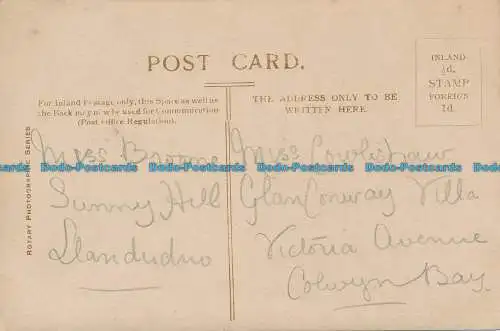 POST CARD.
INLAND
½d.
STAMP
FOREIGN
1d.
For Inland Postage only, this Space as well as
the Back may now be used for Communication
(Post Office Regulation).
THE ADDRESS ONLY TO BE
WRITTEN HERE.
ROTARY PHOTOGRAPHIC SERIES
Miss Browne
Sunny Hill
Llandudno
Miss Cowlishaw
Glan Conway Villa
Victoria Avenue
Colwyn Bay.
Bodo-Postcards Bodo-Postcards Bodo-Postcards
Bodo-Postcards Bodo-Postcards Bodo-Postcards
Bodo-Postcards Bodo-Postcards Bodo-Postcards